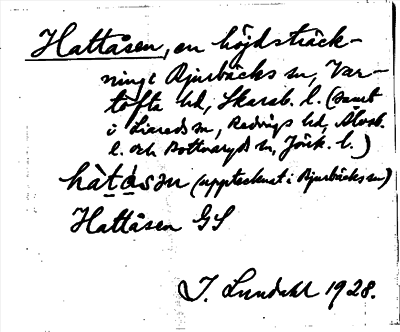 Hattåsen, en höjdsträck-
ning i Bjurbäcks sn, Var-
tofta hd, Skarab. l. (samt
i Liareds sn, Redvägs hd, Älvsb.
l. och Bottnaryds sn, Jönk. l.)
hàt̤ås̤ən (upptecknat i Bjurbäcks sn)
Hattåsen GS
I. Lundahl 1928.